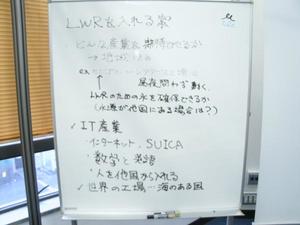 LWRを入れる条
・どんな産業を期待できるか
→ 地域
ex.
昼夜問わず動く
LWRのための水を確保できるか
(水源が他国にある場合は?)
✓ IT産業
・インターネット、SUICA
・数学と英語
・人を他国から入れる
✓ 世界の工場…海のある国